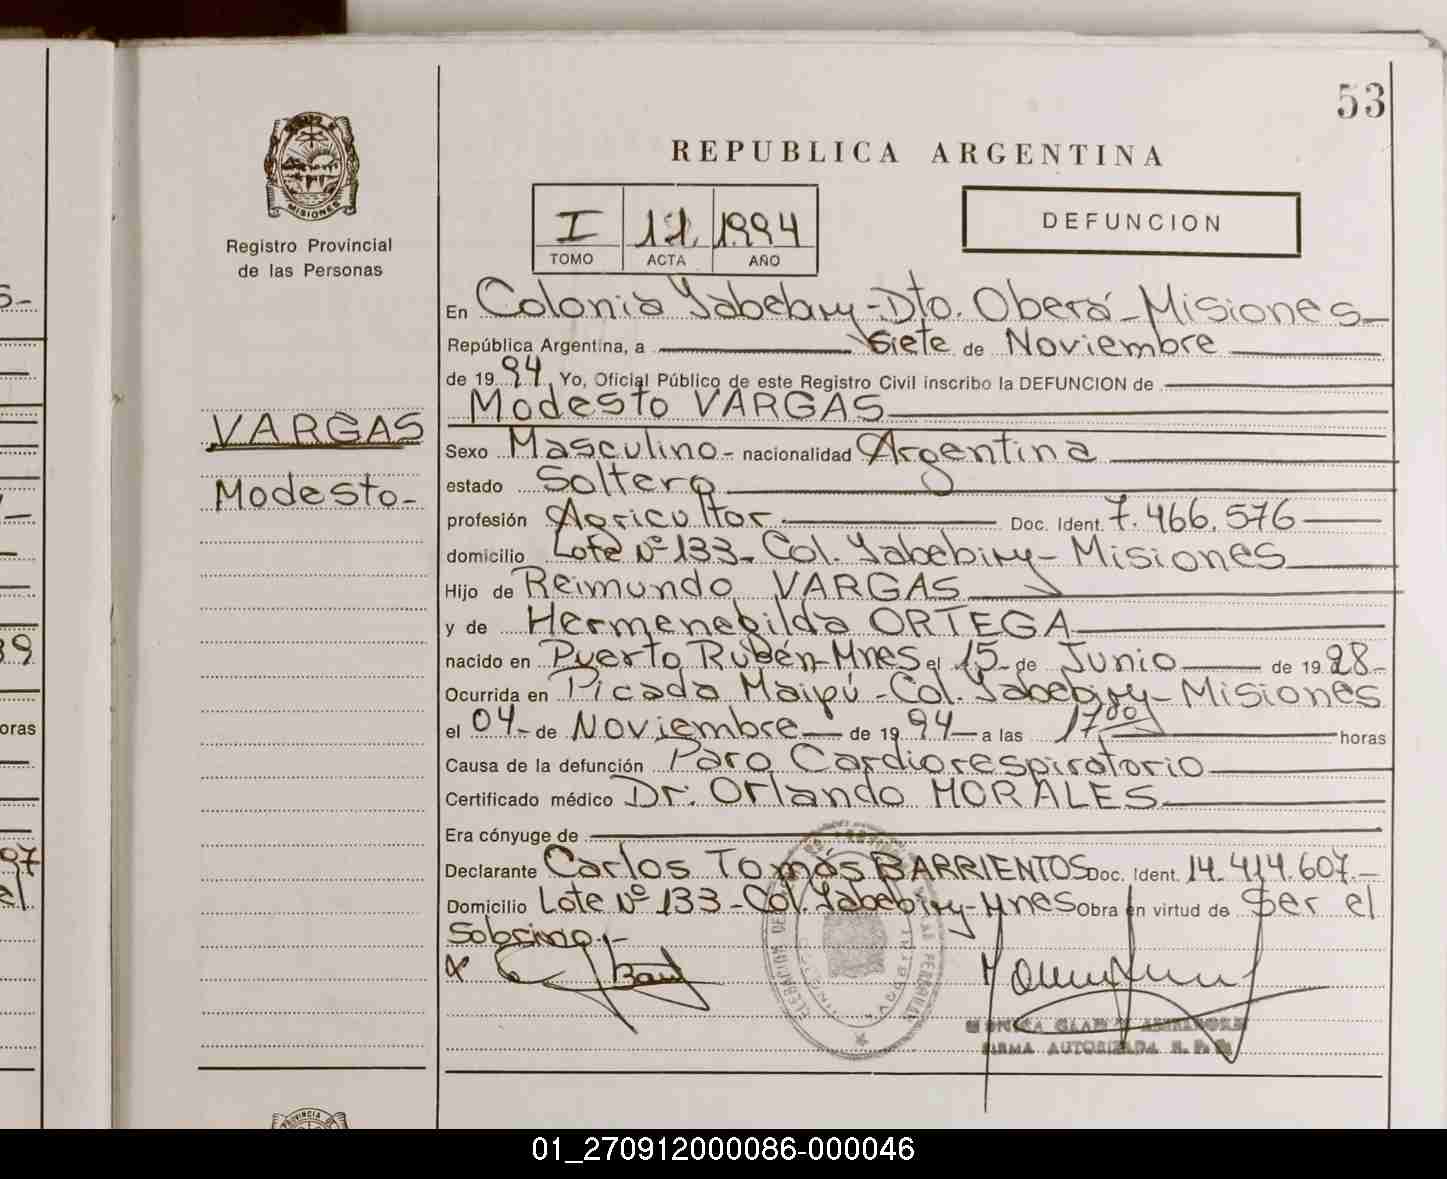 53
REPUBLICA ARGENTINA
MISIONES
Registro Provincial
de las Personas
I 11 1994
TOMO ACTA AÑO
DEFUNCION
En Colonia Yabebiry-Dto. Oberá-Misiones
República Argentina, a Siete de Noviembre
de 1994 Yo, Oficial Público de este Registro Civil inscribo la DEFUNCION de
Modesto VARGAS
VARGAS
Modesto-
Sexo Masculino- nacionalidad Argentina
estado Soltero
profesión Agricultor Doc. Ident. 7.466.576
domicilio Lote Nº 133- Col. Yabebiry- Misiones
Hijo de Reimundo VARGAS
y de Hermenegilda ORTEGA
nacido en Puerto Rubén-Mnes el 15- de Junio de 1928-
Ocurrida en Picada Maipú-Col. Yabebiry-Misiones
el 04- de Noviembre de 1994 a las 1700 horas
Causa de la defunción Paro Cardiorespiratorio
Certificado médico Dr. Orlando MORALES
Era cónyuge de
Declarante Carlos Tomás BARRIENTOS Doc. Ident. 14.414.607.-
Domicilio Lote Nº 133-Col. Yabebiry-Mnes Obra en virtud de Ser el
Sobrino.-
FIRMA AUTORIZADA
PROVINCIA DE
39
horas
97
el
01_270912000086-000046